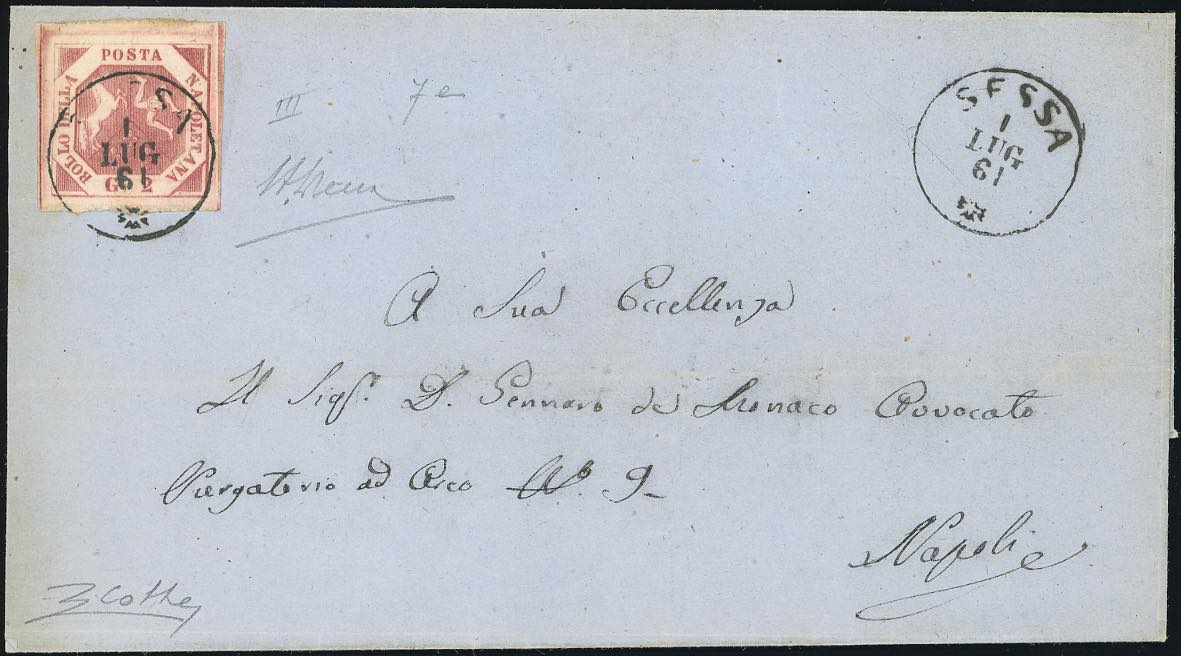 POSTA
NAPOLETANA
BOLLO DELLA
G. 2
SA
1
LUG
61
III 7e
SESSA
1
LUG
61
A Sua Eccellenza
Il Sigr. D. Gennaro de Monaco Avvocato
Purgatorio ad Arco N.° 9
Napoli